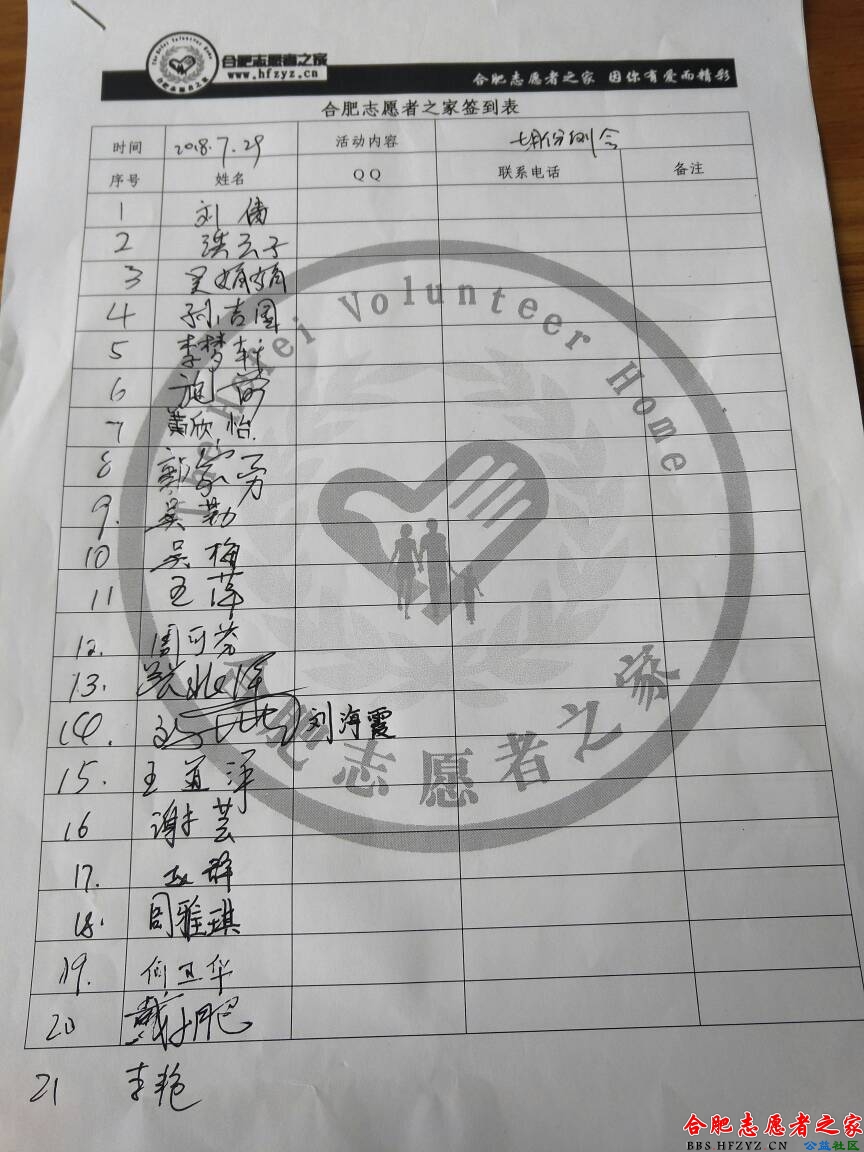 The Hefei Volunteer Home
合肥志愿者之家
合肥志愿者之家
www.hfzyz.cn
合肥志愿者之家 因你有爱而精彩
合肥志愿者之家签到表
时间 2018.7.29 活动内容 七月份例会
序号 姓名 QQ 联系电话 备注
1 刘倩
2 洪云子
3 吴娟娟
4 孙吉园
5 李梦轩
6
7 黄欣怡
8 郭家勇
9. 吴勤
10 吴梅
11 王萍
12. 周可芳
13.
14. 刘海霞
15. 王道萍
16 谢芸
17. 赵群
18. 周雅琪
19. 何卫华
20 戴
21 李艳
Hefei Volunteer Home
合肥志愿者之家
合肥志愿者之家
BBS.HFZYZ.CN 公益社区